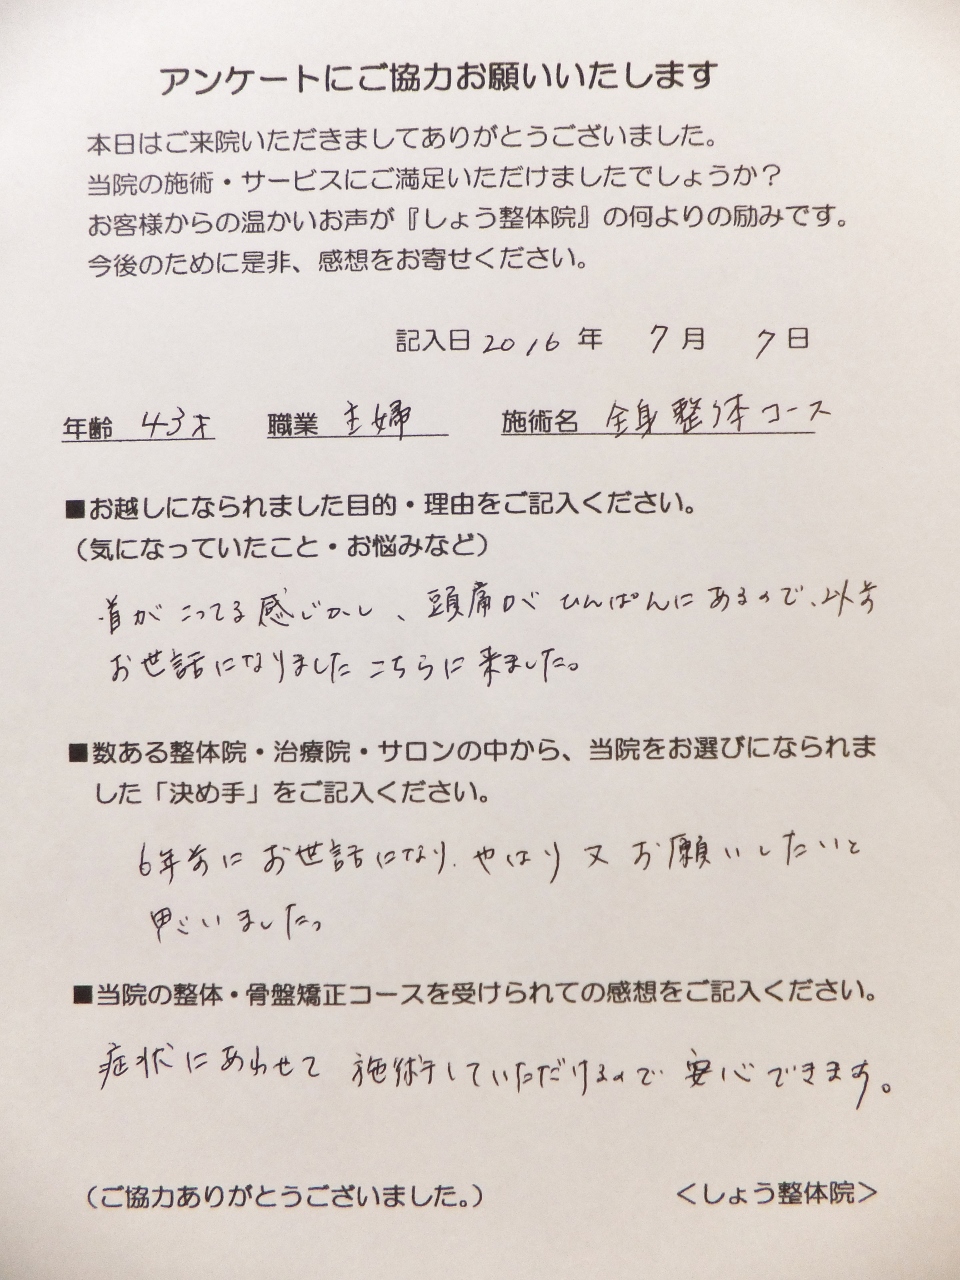 アンケートにご協力お願いいたします
本日はご来院いただきましてありがとうございました。
当院の施術・サービスにご満足いただけましたでしょうか？
お客様からの温かいお声が『しょう整体院』の何よりの励みです。
今後のために是非、感想をお寄せください。
記入日 2016 年 7 月 7 日
年齢 43才 職業 主婦 施術名 全身整体コース
■お越しになられました目的・理由をご記入ください。
（気になっていたこと・お悩みなど）
首がこってる感じがし、頭痛がひんぱんにあるので、以前
お世話になりましたこちらに来ました。
■数ある整体院・治療院・サロンの中から、当院をお選びになられま
した「決め手」をご記入ください。
6年前にお世話になり、やはり又お願いしたいと
思いました。
■当院の整体・骨盤矯正コースを受けられての感想をご記入ください。
症状にあわせて施術していただけるので安心できます。
（ご協力ありがとうございました。） ＜しょう整体院＞